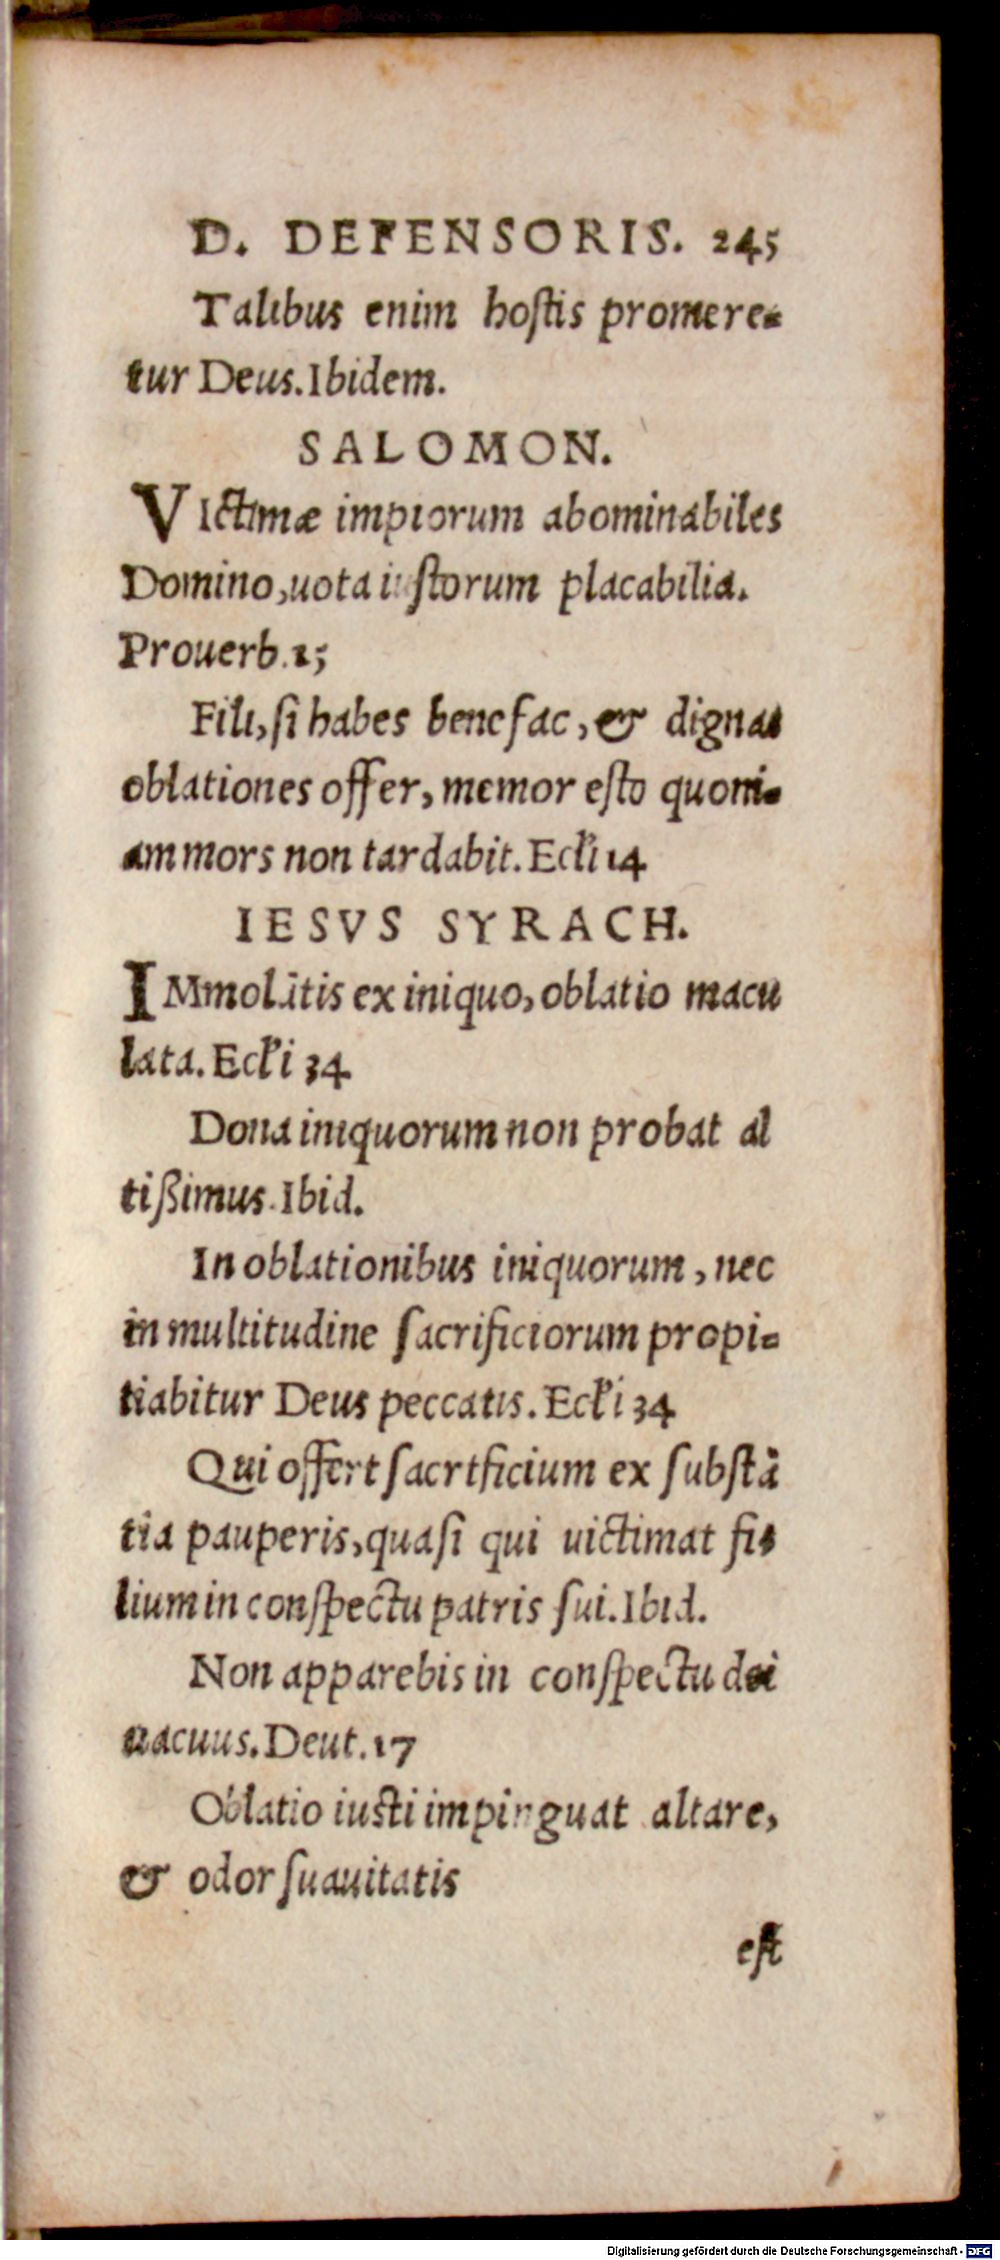 D. DEFENSORIS. 245
Talibus enim hoſtis promere-
tur Deus. Ibidem.
SALOMON.
VIctimæ impiorum abominabiles
Domino, uota iuſtorum placabilia.
Prouerb. 15
Fili, ſi habes benefac, & dignas
oblationes offer, memor eſto quoni-
am mors non tardabit. Ecłi 14
IESVS SYRACH.
IMmolātis ex iniquo, oblatio macu
lata. Ecłi 34
Dona iniquorum non probat al
tißimus. Ibid.
In oblationibus iniquorum, nec
in multitudine ſacrificiorum propi-
tiabitur Deus peccatis. Ecłi 34
Qui offert ſacrtficium ex ſubſtā
tia pauperis, quaſi qui uictimat fi-
lium in conſpectu patris ſui. Ibid.
Non apparebis in conſpectu dei
uacuus. Deut. 17
Oblatio iuſti impinguat altare,
& odor ſuauitatis
eſt
Digitalisierung gefördert durch die Deutsche Forschungsgemeinschaft - DFG